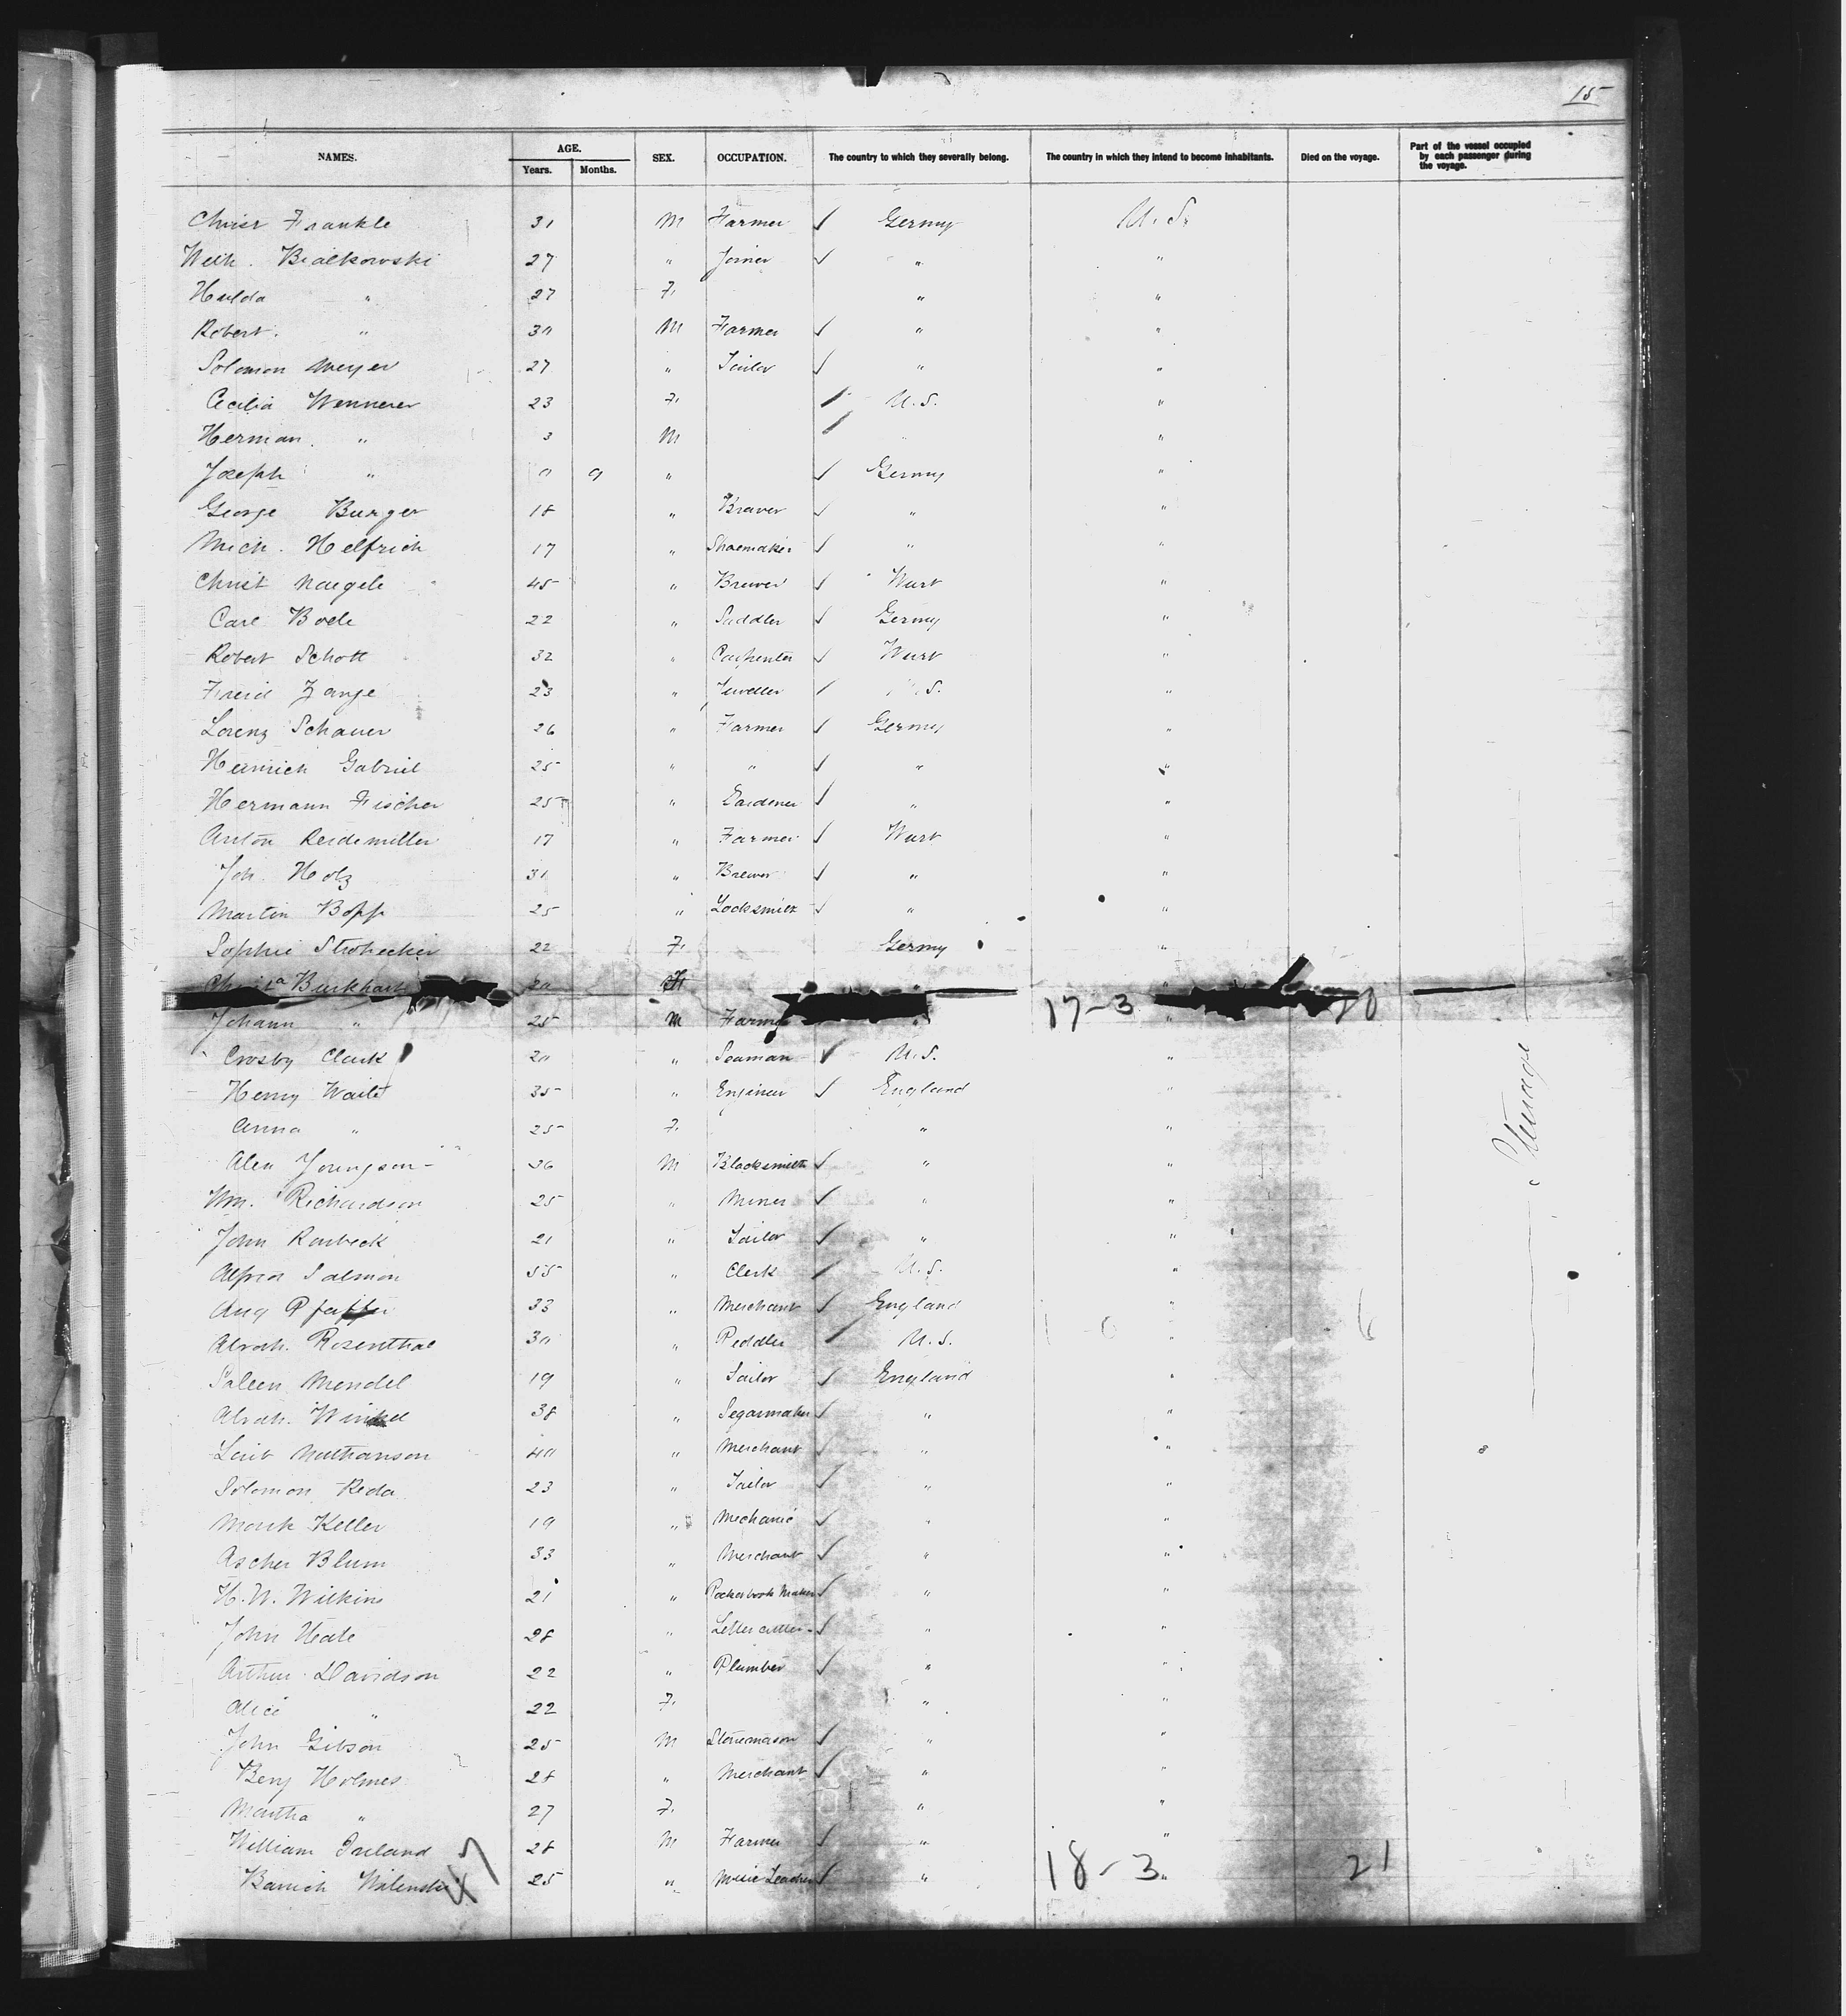 15
NAMES. AGE. SEX. OCCUPATION. The country to which they severally belong. The country in which they intend to become inhabitants. Died on the voyage. Part of the vessel occupied by each passenger during the voyage.
Years. Months.
Christ Frankle 31 M Farmer ✓ Germy U.S.
Bialkowski 27 " Joiner ✓ " "
Hulda " 27 F. " "
Robert. " 30 M Farmer ✓ " "
Solomon Meyer 27 " Tailor ✓ " "
Cecilia Wennerer 23 F. U.S. "
Herman. " 3 M " "
Joseph " 0 9 " ✓ Germy "
George Burger 18 " Brewer ✓ " "
Mich. Helfrich 17 " Shoemaker ✓ " "
Christ Naegele 45 " Brewer ✓ Wurt "
Carl 22 " Saddler ✓ Germy "
Robert Schott 32 " Carpenter ✓ Wurt "
Zange 23 " Jeweller S. "
Lorenz Schauer 26 " Farmer ✓ Germy "
Heinrich Gabriel 25 " " ✓ " "
Hermann Fischer 25 " Gardener ✓ " "
Anton Reidemiller 17 " Farmer ✓ Wurt "
Joh. Holz 31 " Brewer ✓ " "
Martin Bopp 25 " Locksmith ✓ " "
Sophie Strohecker 22 F. Germy "
Burkhart 20 "
Johann " 25 M Farmer " 17-3 " 20
Crosby Clark 20 " Seaman ✓ U.S. "
Henry Waite 35 " Engineer ✓ England "
Anna " 25 F. " "
Alex Youngson 36 M Blacksmith ✓ " "
Wm. Richardson 25 " Miner ✓ " "
John Roebeck 21 " Tailor ✓ " "
Alfred Salmon 55 " Clerk U.S. "
Aug Pfeiffer 33 " Merchant ✓ England "
Abrah. Rosenthal 30 " Peddler U.S. "
Mendel 19 " Tailor ✓ England "
Abrah. Winkel 38 " Segarmaker ✓ " "
Leib Nathanson 40 " Merchant ✓ " "
Solomon Reda 23 " Tailor ✓ " "
Keller 19 " Mechanic ✓ " "
Ascher Blum 33 " Merchant ✓ " "
H. W. Wilkins 21 " Pocketbook Maker ✓ " "
John Heate 28 " Letter cutter ✓ " "
Arthur Davidson 22 " Plumber ✓ " "
Alice " 22 F. " "
John Gibson 25 M Stonemason ✓ " "
Benj Holmes 28 " Merchant ✓ " "
Martha " 27 F. " "
William Ireland 28 M Farmer ✓ " "
Barnich 25 " Music Teacher ✓ " 18-3 " 21
47
Steerage